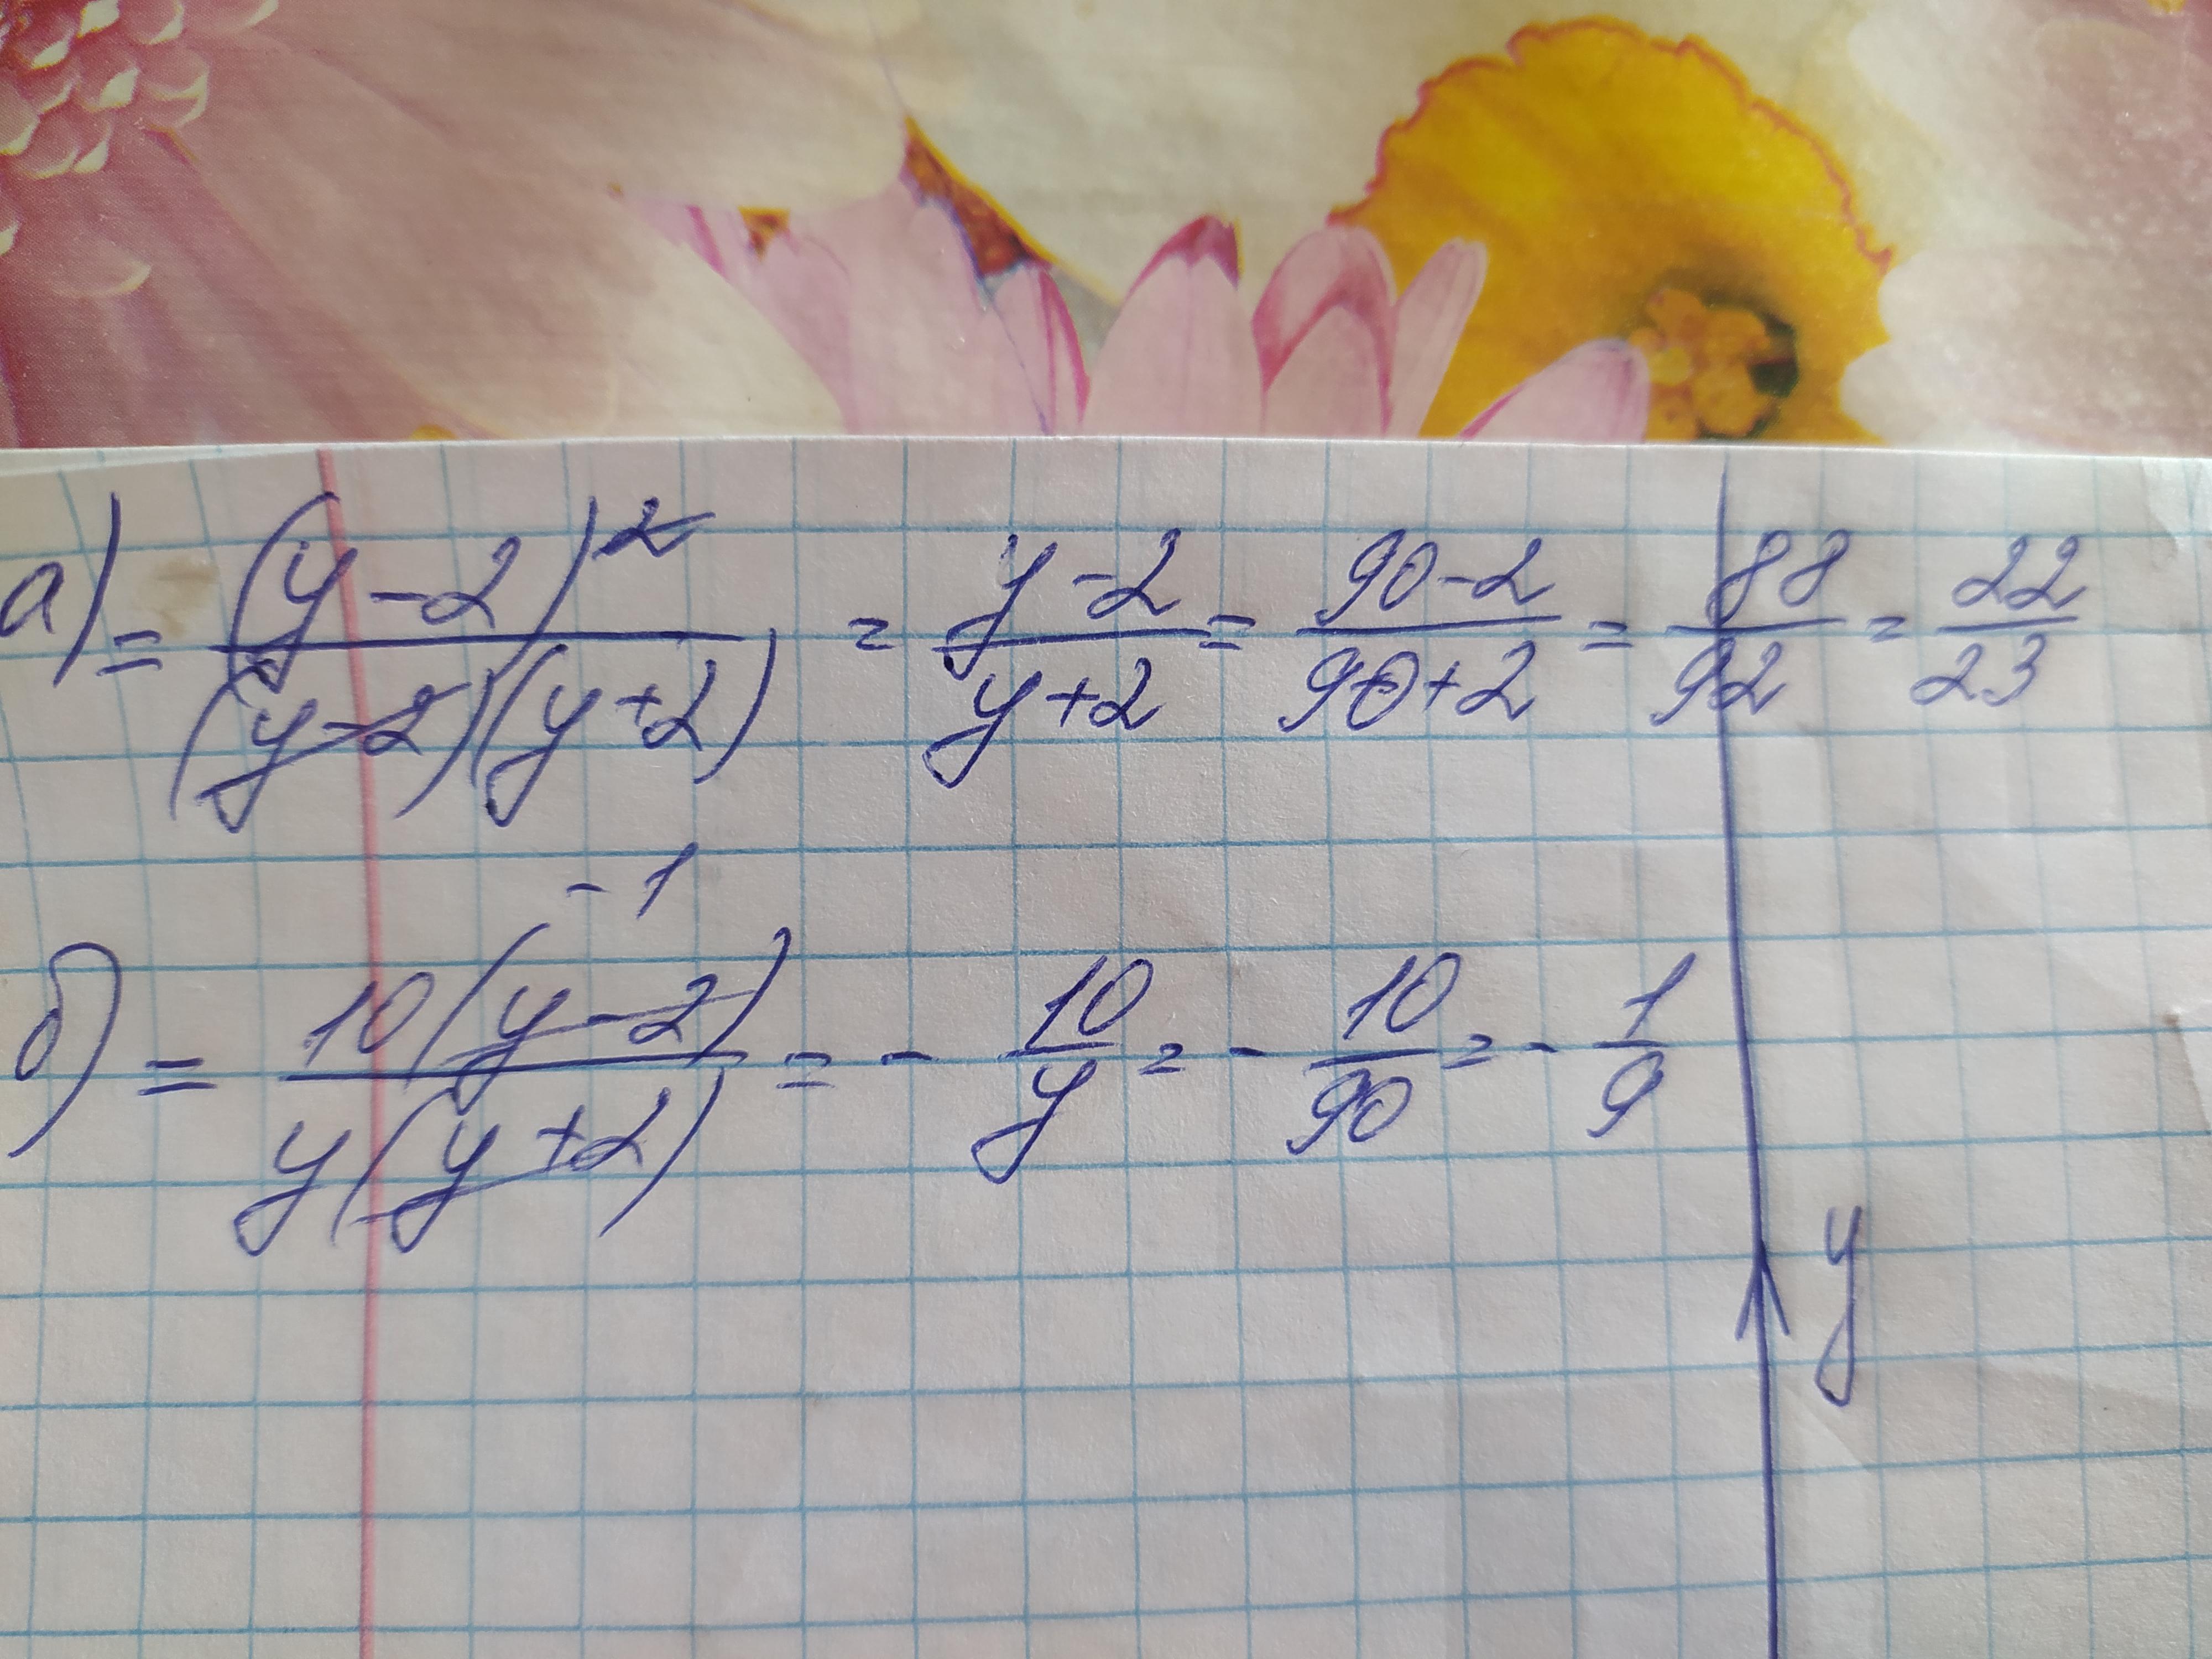 а) = (y-2)²/((y-2)(y+2)) = (y-2)/(y+2) = (90-2)/(90+2) = 88/92 = 22/23
-1
б) = 10(y-2)/(y(y+2)) = - 10/y = - 10/90 = - 1/9
y